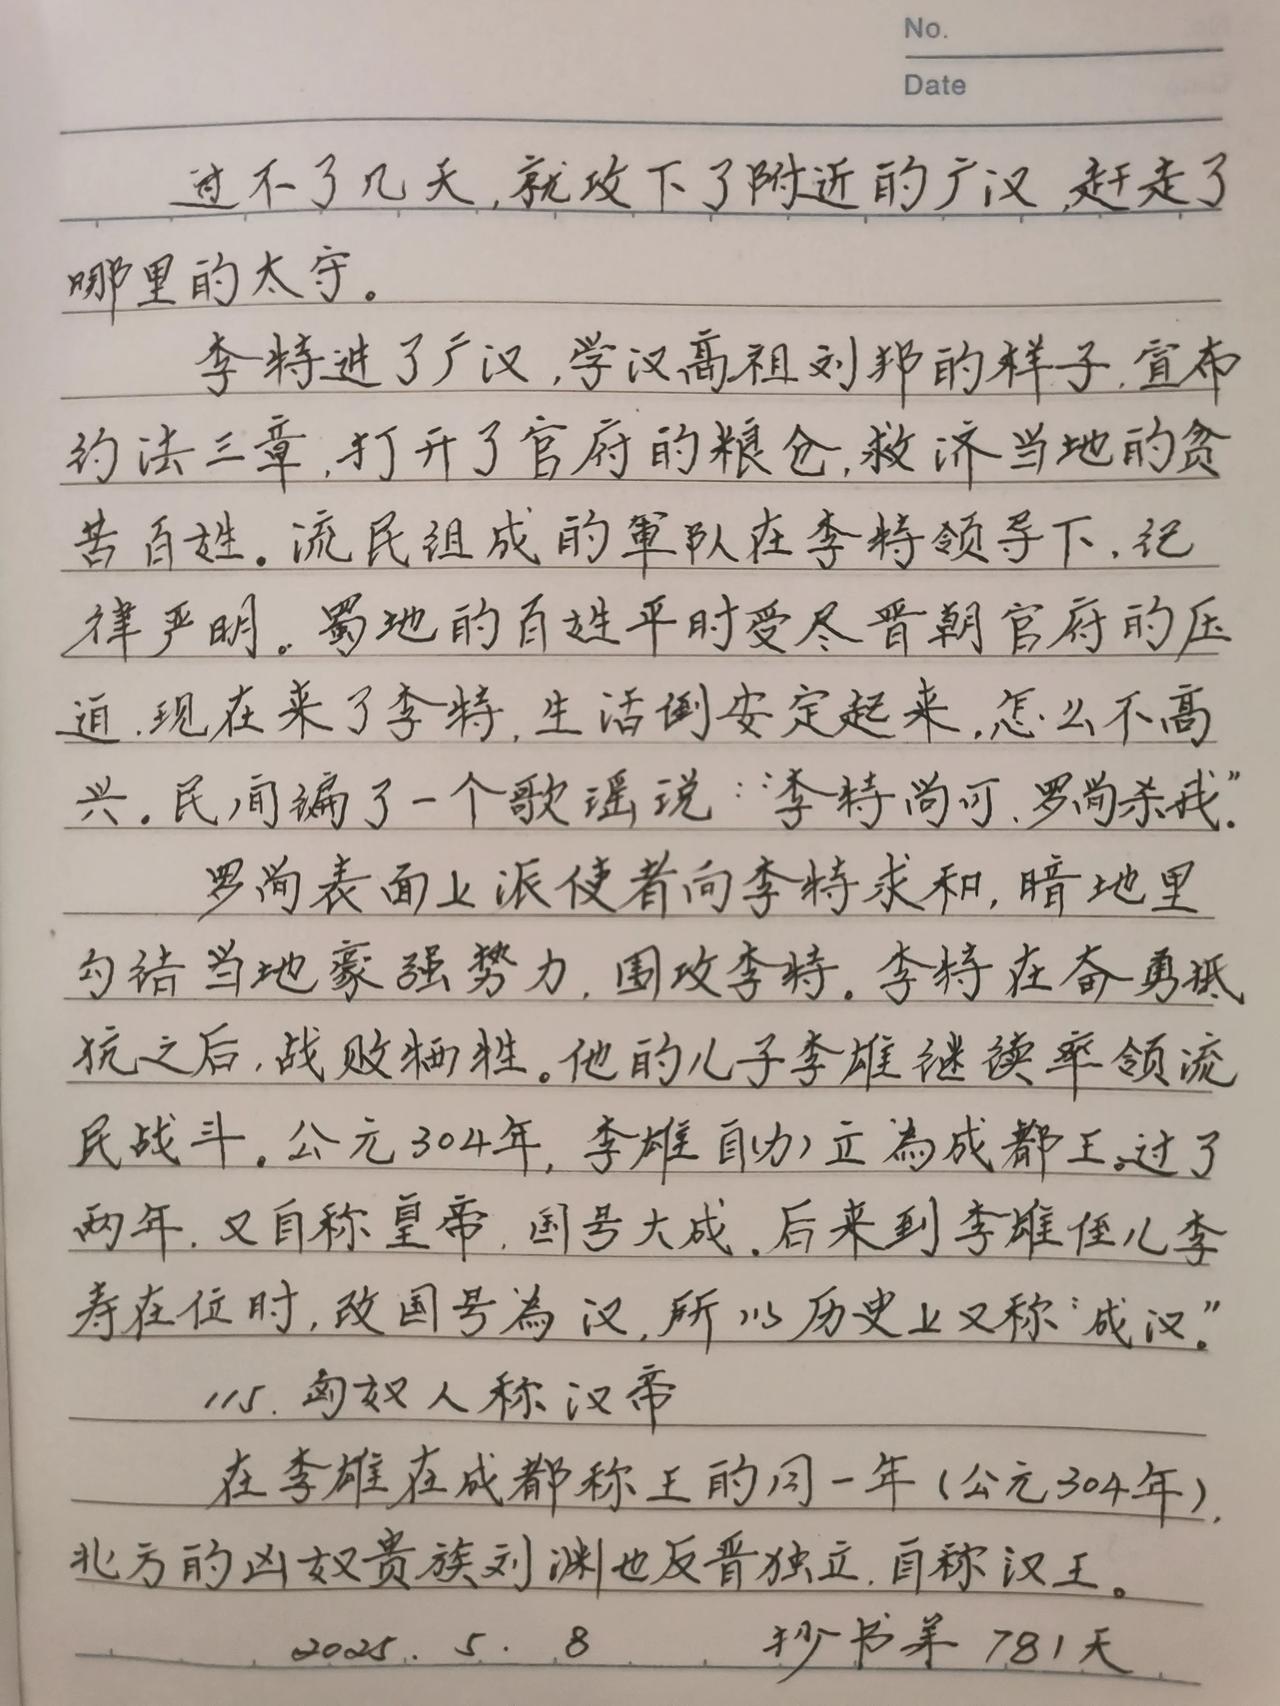 No.
Date
过不了几天,就攻下了附近的广汉,赶走了
哪里的太守。
李特进了广汉,学汉高祖刘邦的样子,宣布
约法三章,打开了官府的粮仓,救济当地的贫
苦百姓。流民组成的軍队在李特领导下,纪
律严明。蜀地的百姓平时受尽晋朝官府的压
迫,现在来了李特,生活倒安定起来,怎么不高
兴。民间编了一个歌谣说:“李特尚可,罗尚杀我”.
罗尚表面上派使者向李特求和,暗地里
勾结当地豪强势力,围攻李特。李特在奋勇抵
抗之后,战败牺牲。他的儿子李雄继续率领流
民战斗。公元304年,李雄自(力)立為成都王。过了
两年,又自称皇帝,国号大成.后来到李雄侄儿李
寿在位时,改国号為汉,所以历史上又称“成汉.”
115.匈奴人称汉帝
在李雄在成都称王的同一年(公元304年),
北方的凶奴贵族刘渊也反晋独立,自称汉王。
2025.5.8 抄书第781天